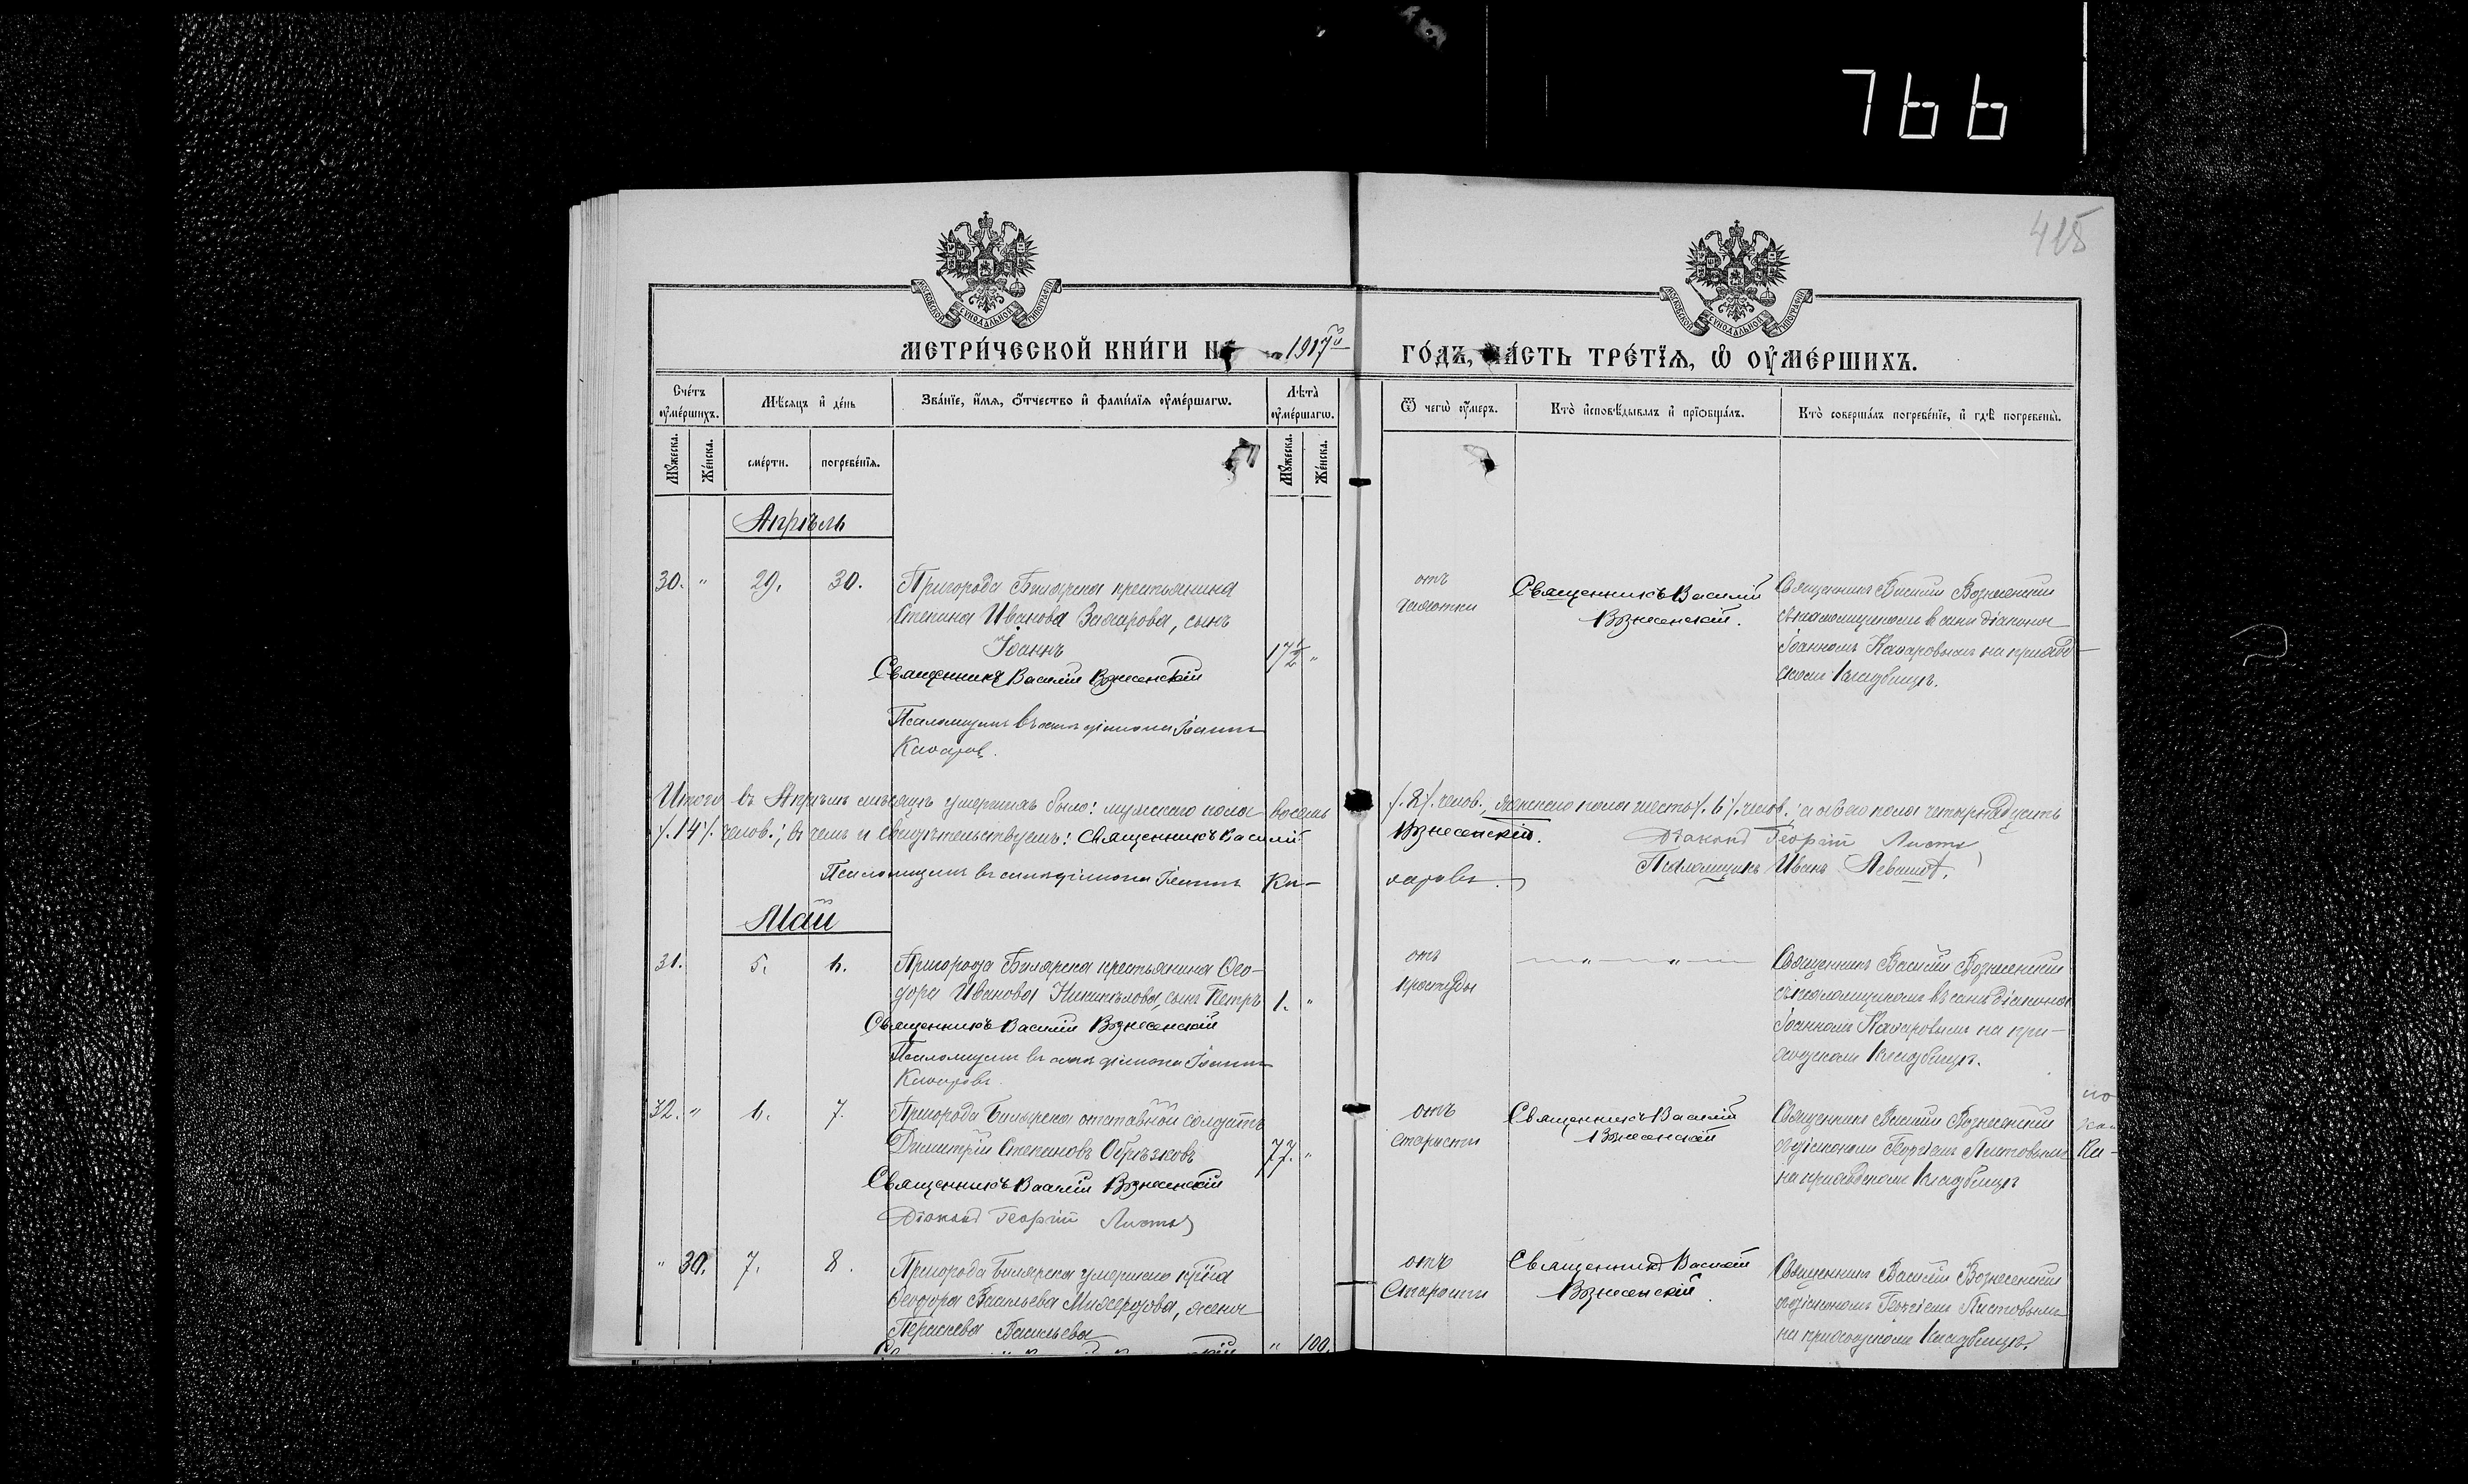 766
415
МОСКОВСКОЙ СУНОДАЛЬНОЙ ТИПОГРАФІИ
МОСКОВСКОЙ СУНОДАЛЬНОЙ ТИПОГРАФІИ
МЕТРИ́ЧЕСКОЙ КНИ́ГИ НА 1917й
ГО́ДЪ, ЧА́СТЬ ТРЕ́ТЇѦ, Ѡ ОУ҆МЕ́РШИХЪ.
Сче́тъ оу҆ме́ршихъ.
Мѣ́сяцъ и҆ де́нь
Зва́нїе, и҆́мѧ, ѻ҆́тчество и҆ фами́лїѧ оу҆ме́ршагѡ.
Лѣта̀ оу҆ме́ршагѡ.
Ѿ чегѡ̀ оу҆́меръ.
Кто̀ и҆сповѣ́дывалъ и҆ прїѡбща́лъ.
Кто̀ соверша́лъ погребе́нїе, и҆ гдѣ̀ погребены̀.
Мꙋ́жеска.
Же́нска.
сме́рти.
погребе́нїѧ.
Мꙋ́жеска.
Же́нска.
Апрѣль
30. " 29. 30. Пригорода Билярска крестьянина
Степана Иванова Захарова, сынъ
Іоаннъ 17½ "
Священникъ Василій Вознесенскій
Псаломщикъ въ санѣ діакона Іоаннъ
отъ
чахотки
Священникъ Василій
Вознесенскій.
Священникъ Василій Вознесенскій
съ псаломщикомъ в санѣ діакона
Іоанномъ на приход-
скомъ кладбищѣ.
Итого въ Апрѣлѣ мѣсяцѣ умершихъ было: мужскаго пола восемь /.8/. челов., женскаго пола шесть /.6/. челов.; а обоего пола четырнадцать
/.14/. челов.; въ чемъ и свидѣтельствуемъ: Священникъ Василій Вознесенскій.
Діаконъ Георгій Листовъ
Псаломщикъ въ санѣ діакона Іоаннъ
Псаломщикъ Иванъ
Май
31. 5. 6. Пригорода Билярска крестьянина Ѳео-
дора Иванова сынъ Петръ 1. "
Священникъ Василій Вознесенскій
Псаломщикъ въ санѣ діакона Іоаннъ
отъ
простуды
" "
Священникъ Василій Вознесенскій
съ псаломщикомъ въ санѣ діакона
Іоанномъ на при-
ходскомъ кладбищѣ.
32. " 6. 7. Пригорода Билярска отставной солдатъ
Димитрій Степановъ Обрѣзковъ 77. "
Священникъ Василій Вознесенскій
Діаконъ Георгій Листовъ
отъ
старости
Священникъ Василій
Вознесенскій
Священникъ Василій Вознесенскій
съ діакономъ Георгіемъ Листовымъ
на приходскомъ кладбищѣ
" 30. 7. 8. Пригорода Билярска умершаго
Ѳеодора Васильева жена
Параскева Васильева " 100.
отъ
старости
Священникъ Василій
Вознесенскій.
Священникъ Василій Вознесенскій
съ діакономъ Георгіемъ Листовымъ
на приходскомъ кладбищѣ.